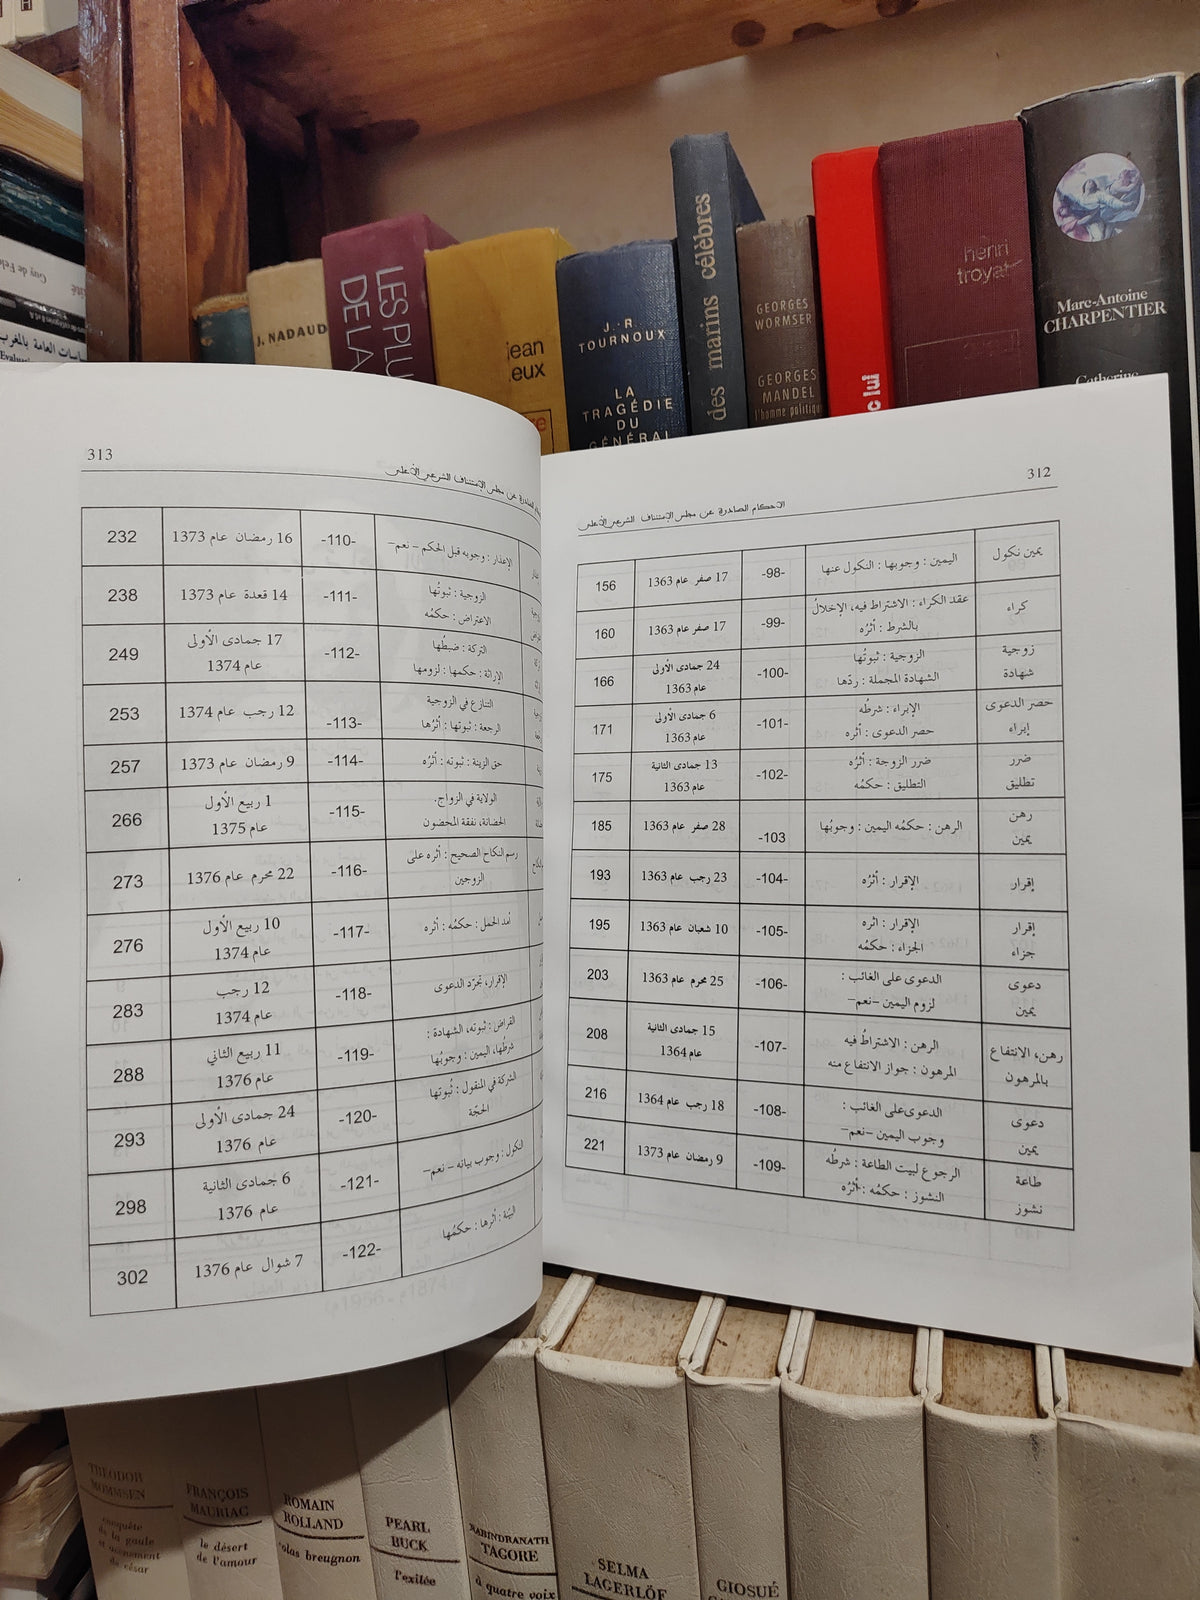 J. NADAUD
LES PLU
DE LA
jean
eux
J.-R.
TOURNOUX
LA
TRAGÉDIE
DU
GÉNÉRAL
des marins célèbres
GEORGES
WORMSER
GEORGES
MANDEL
l'homme politique
lui
henri
troyat
Marc-Antoine
CHARPENTIER
Catherine
Guy de
312
الأحكام الصادرة عن مجلس الإستئناف الشرعي الأعلى
يمين نكول | اليمين : وجوبها : النكول عنها | -98- | 17 صفر عام 1363 | 156
كراء | عقد الكراء : الاشتراط فيه، الإخلالُ بالشرط : أثرُه | -99- | 17 صفر عام 1363 | 160
زوجية شهادة | الزوجية : ثبوتُها الشهادة المجملة : ردّها | -100- | 24 جمادى الأولى عام 1363 | 166
حصر الدعوى إبراء | الإبراء : شرطُه حصر الدعوى : أثره | -101- | 6 جمادى الأولى عام 1363 | 171
ضرر تطليق | ضرر الزوجة : أثرُه التطليق : حكمُه | -102- | 13 جمادى الثانية عام 1363 | 175
رهن يمين | الرهن : حكمُه اليمين : وجوبُها | -103 | 28 صفر عام 1363 | 185
إقرار | الإقرار : أثرُه | -104- | 23 رجب عام 1363 | 193
إقرار جزاء | الإقرار : اثره الجزاء : حكمُه | -105- | 10 شعبان عام 1363 | 195
دعوى يمين | الدعوى على الغائب : لزوم اليمين –نعم– | -106- | 25 محرم عام 1363 | 203
رهن، الانتفاع بالمرهون | الرهن : الاشتراطُ فيه المرهون : جواز الانتفاع منه | -107- | 15 جمادى الثانية عام 1364 | 208
دعوى يمين | الدعوى على الغائب : وجوب اليمين –نعم– | -108- | 18 رجب عام 1364 | 216
طاعة نشوز | الرجوع لبيت الطاعة : شرطُه النشوز : حكمُه : أثرُه | -109- | 9 رمضان عام 1373 | 221
313
الصادرة عن مجلس الإستئناف الشرعي الأعلى
الإعذار : وجوبه قبل الحكم – نعم– | -110- | 16 رمضان عام 1373 | 232
الزوجية : ثبوتُها الاعتراض : حكمُه | -111- | 14 قعدة عام 1373 | 238
التركة : ضبطُها الإراثة : حكمها : لزومها | -112- | 17 جمادى الأولى عام 1374 | 249
التنازع في الزوجية الرجعة : ثبوتها : أثرُها | -113- | 12 رجب عام 1374 | 253
حق الزينة : ثبوته : أثرُه | -114- | 9 رمضان عام 1373 | 257
الولاية في الزواج. الحضانة، نفقة المحضون | -115- | 1 ربيع الأول عام 1375 | 266
رسم النكاح الصحيح : أثره على الزوجين | -116- | 22 محرم عام 1376 | 273
أمد الحمل : حكمُه : أثره | -117- | 10 ربيع الأول عام 1374 | 276
الإقرار، تجرّد الدعوى | -118- | 12 رجب عام 1374 | 283
القراض : ثبوته، الشهادة : شرطُها، اليمين : وجوبُها | -119- | 11 ربيع الثاني عام 1376 | 288
الشركة في المنقول : ثُبوتها الحجّة | -120- | 24 جمادى الأولى عام 1376 | 293
النكول : وجوب بيانه – نعم– | -121- | 6 جمادى الثانية عام 1376 | 298
البيّنة : أثرها : حكمُها | -122- | 7 شوال عام 1376 | 302
THEODOR
MOMMSEN
conquête
de la gaule
et avènement
de césar
FRANÇOIS
MAURIAC
le désert
de l'amour
ROMAIN
ROLLAND
colas breugnon
PEARL
BUCK
l'exilée
RABINDRANATH
TAGORE
à quatre voix
SELMA
LAGERLÖF
GIOSUÉ